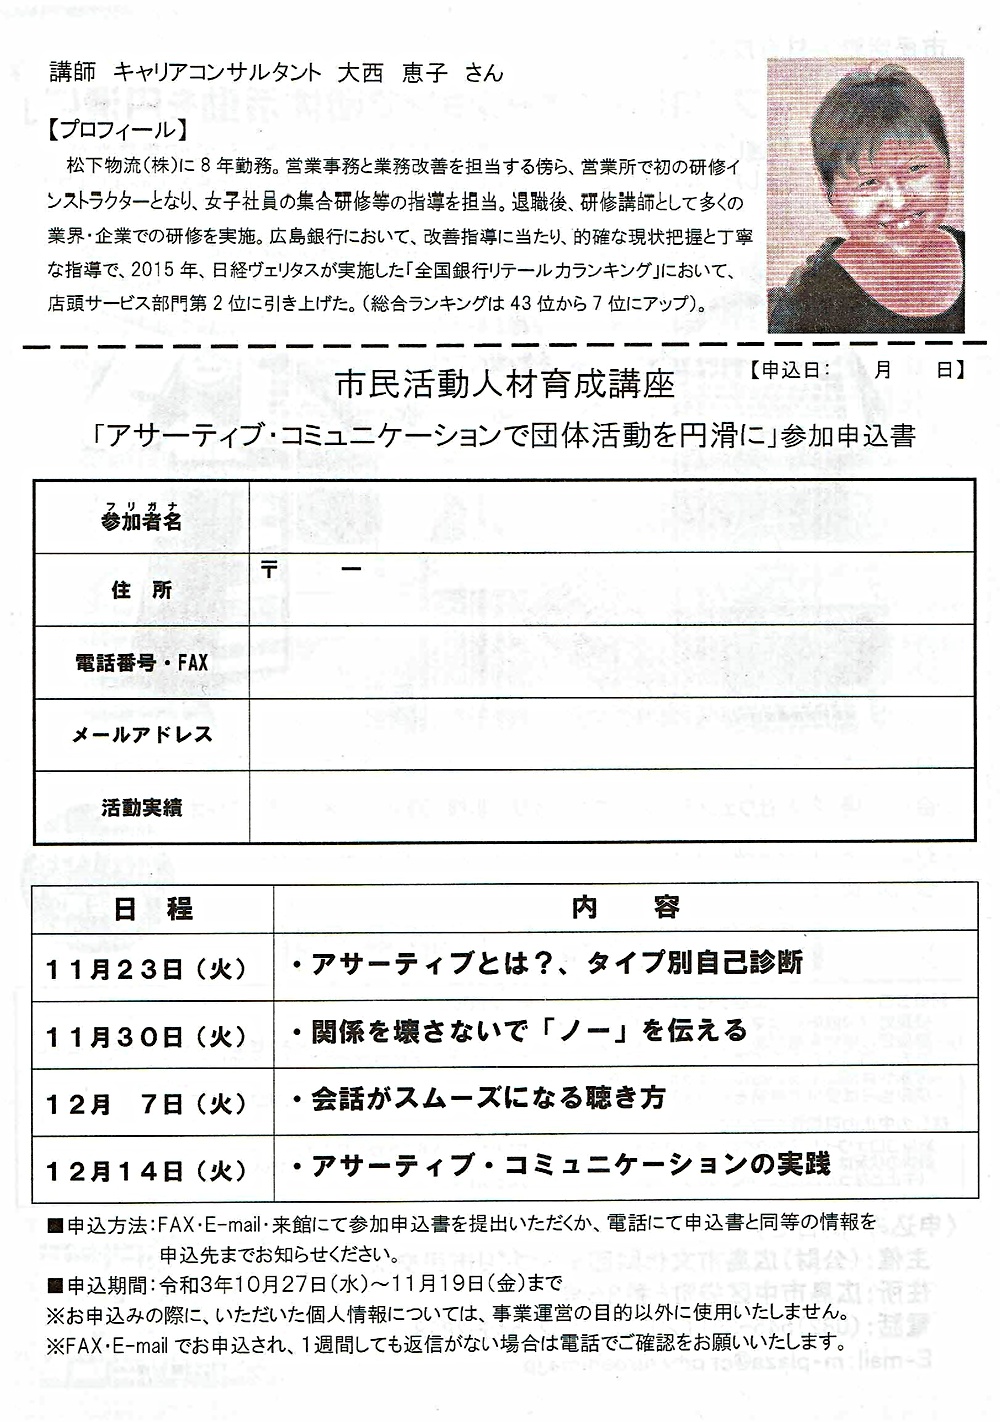 講師　キャリアコンサルタント　大西　恵子　さん
【プロフィール】
松下物流(株)に8年勤務。営業事務と業務改善を担当する傍ら、営業所で初の研修イ
ンストラクターとなり、女子社員の集合研修等の指導を担当。退職後、研修講師として多くの
業界・企業での研修を実施。広島銀行において、改善指導に当たり、的確な現状把握と丁寧
な指導で、2015年、日経ヴェリタスが実施した「全国銀行リテール力ランキング」において、
店頭サービス部門第2位に引き上げた。(総合ランキングは43位から7位にアップ)。
【申込日:　　月　　日】
市民活動人材育成講座
「アサーティブ・コミュニケーションで団体活動を円滑に」参加申込書
フリガナ
参加者名
住　所
〒　　　－
電話番号・FAX
メールアドレス
活動実績
日　程　　内　　容
11月23日(火)　・アサーティブとは?、タイプ別自己診断
11月30日(火)　・関係を壊さないで「ノー」を伝える
12月　7日(火)　・会話がスムーズになる聴き方
12月14日(火)　・アサーティブ・コミュニケーションの実践
■申込方法:FAX・E-mail・来館にて参加申込書を提出いただくか、電話にて申込書と同等の情報を
申込先までお知らせください。
■申込期間:令和3年10月27日(水)～11月19日(金)まで
※お申込みの際に、いただいた個人情報については、事業運営の目的以外に使用いたしません。
※FAX・E-mailでお申込され、1週間しても返信がない場合は電話でご確認をお願いいたします。